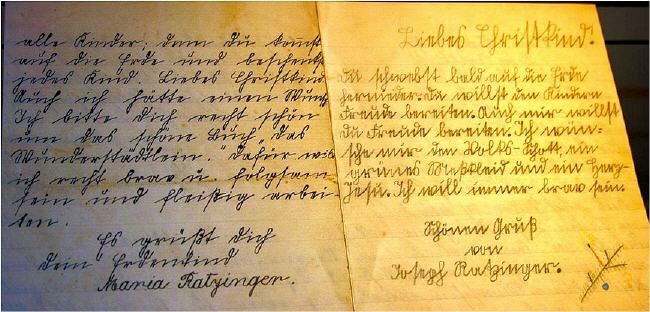 alle Kinder, denn du kommst
auf die Erde und beschenkst
jedes Kind. Liebes Christkind
Auch ich hätte einen Wunsch
Ich bitte dich recht schön
um das schöne Buch „das
Wunderstädtlein." Dafür will
ich recht brav u. folgsam
sein und fleißig arbei-
ten.
Es grüßt dich
dein Erdenkind
Maria Ratzinger.
Liebes Christkind!
Du schwebst bald auf die Erde
hernieder. Du willst den Kindern
Freude bereiten. Auch mir willst
du Freude bereiten. Ich wün-
sche mir den Volks-Schott, ein
grünes Meßkleid und ein Herz-
Jesu. Ich will immer brav sein.
Schönen Gruß
von
Joseph Ratzinger.